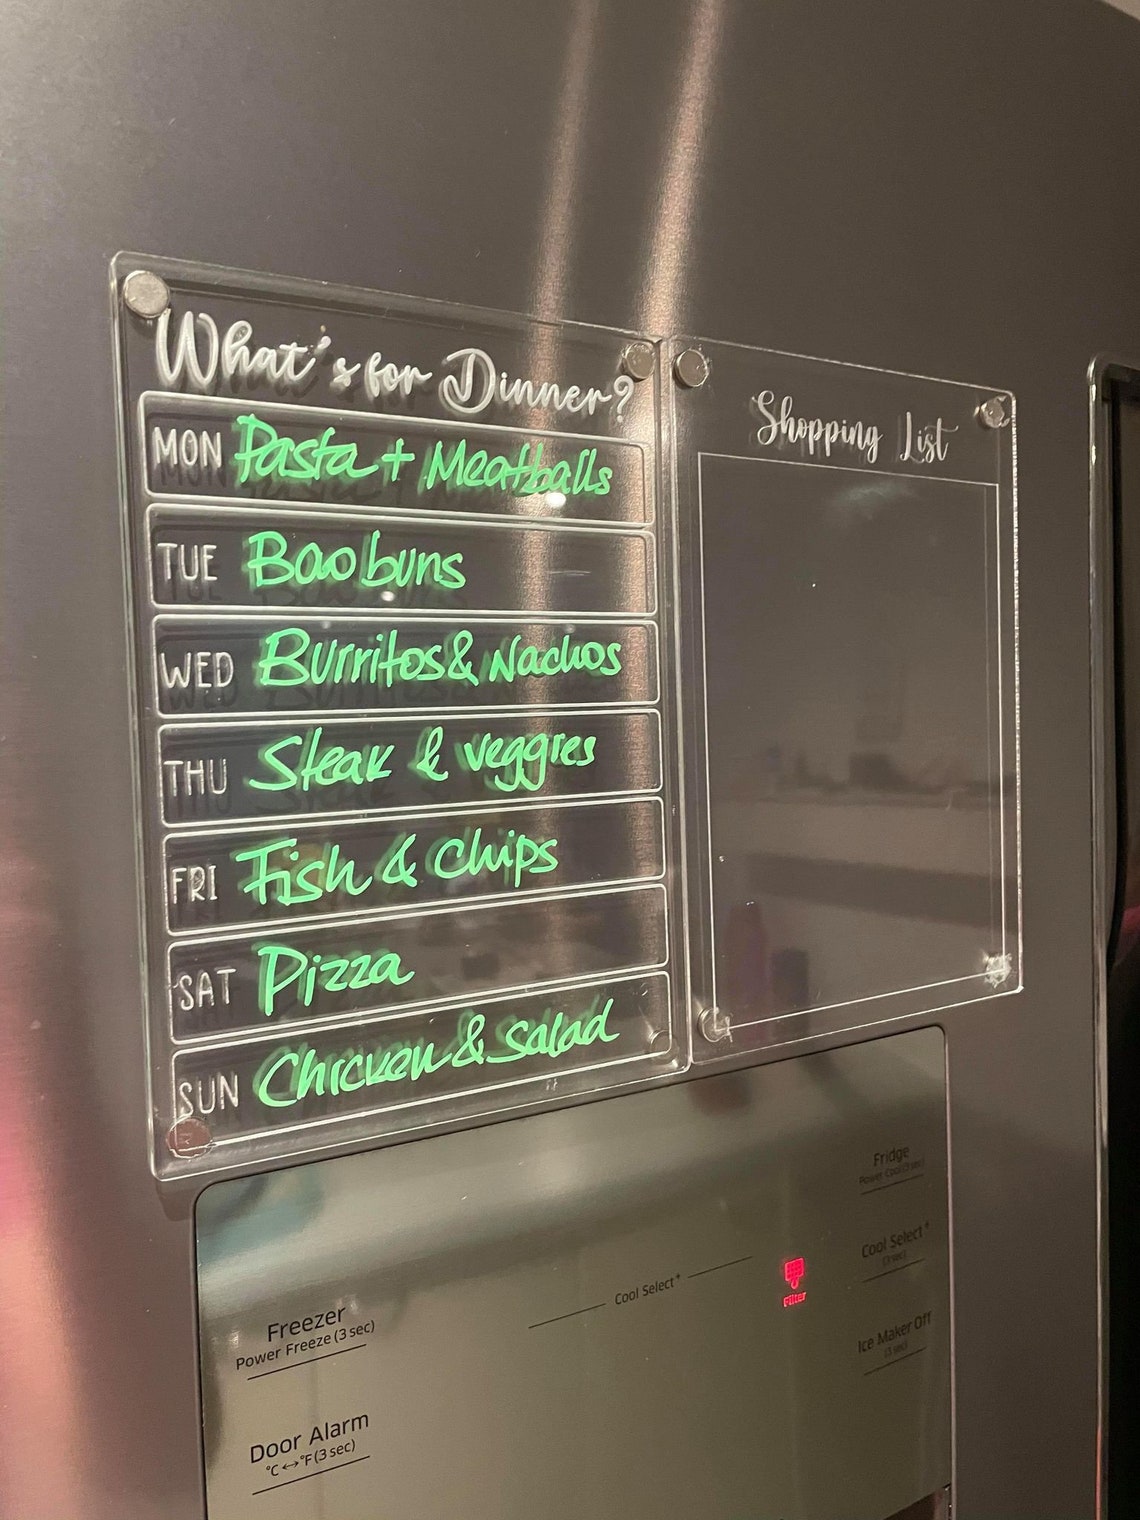 What's for Dinner?
MON Pasta + Meatballs
TUE Bao buns
WED Burritos & Nachos
THU Steak & veggies
FRI Fish & Chips
SAT Pizza
SUN Chicken & salad
Shopping List
Freezer
Power Freeze (3 sec)
Door Alarm
°C ↔ °F (3 sec)
Cool Select+
Filter
Fridge
Power Cool (3 sec)
Cool Select+
(3 sec)
Ice Maker Off
(3 sec)